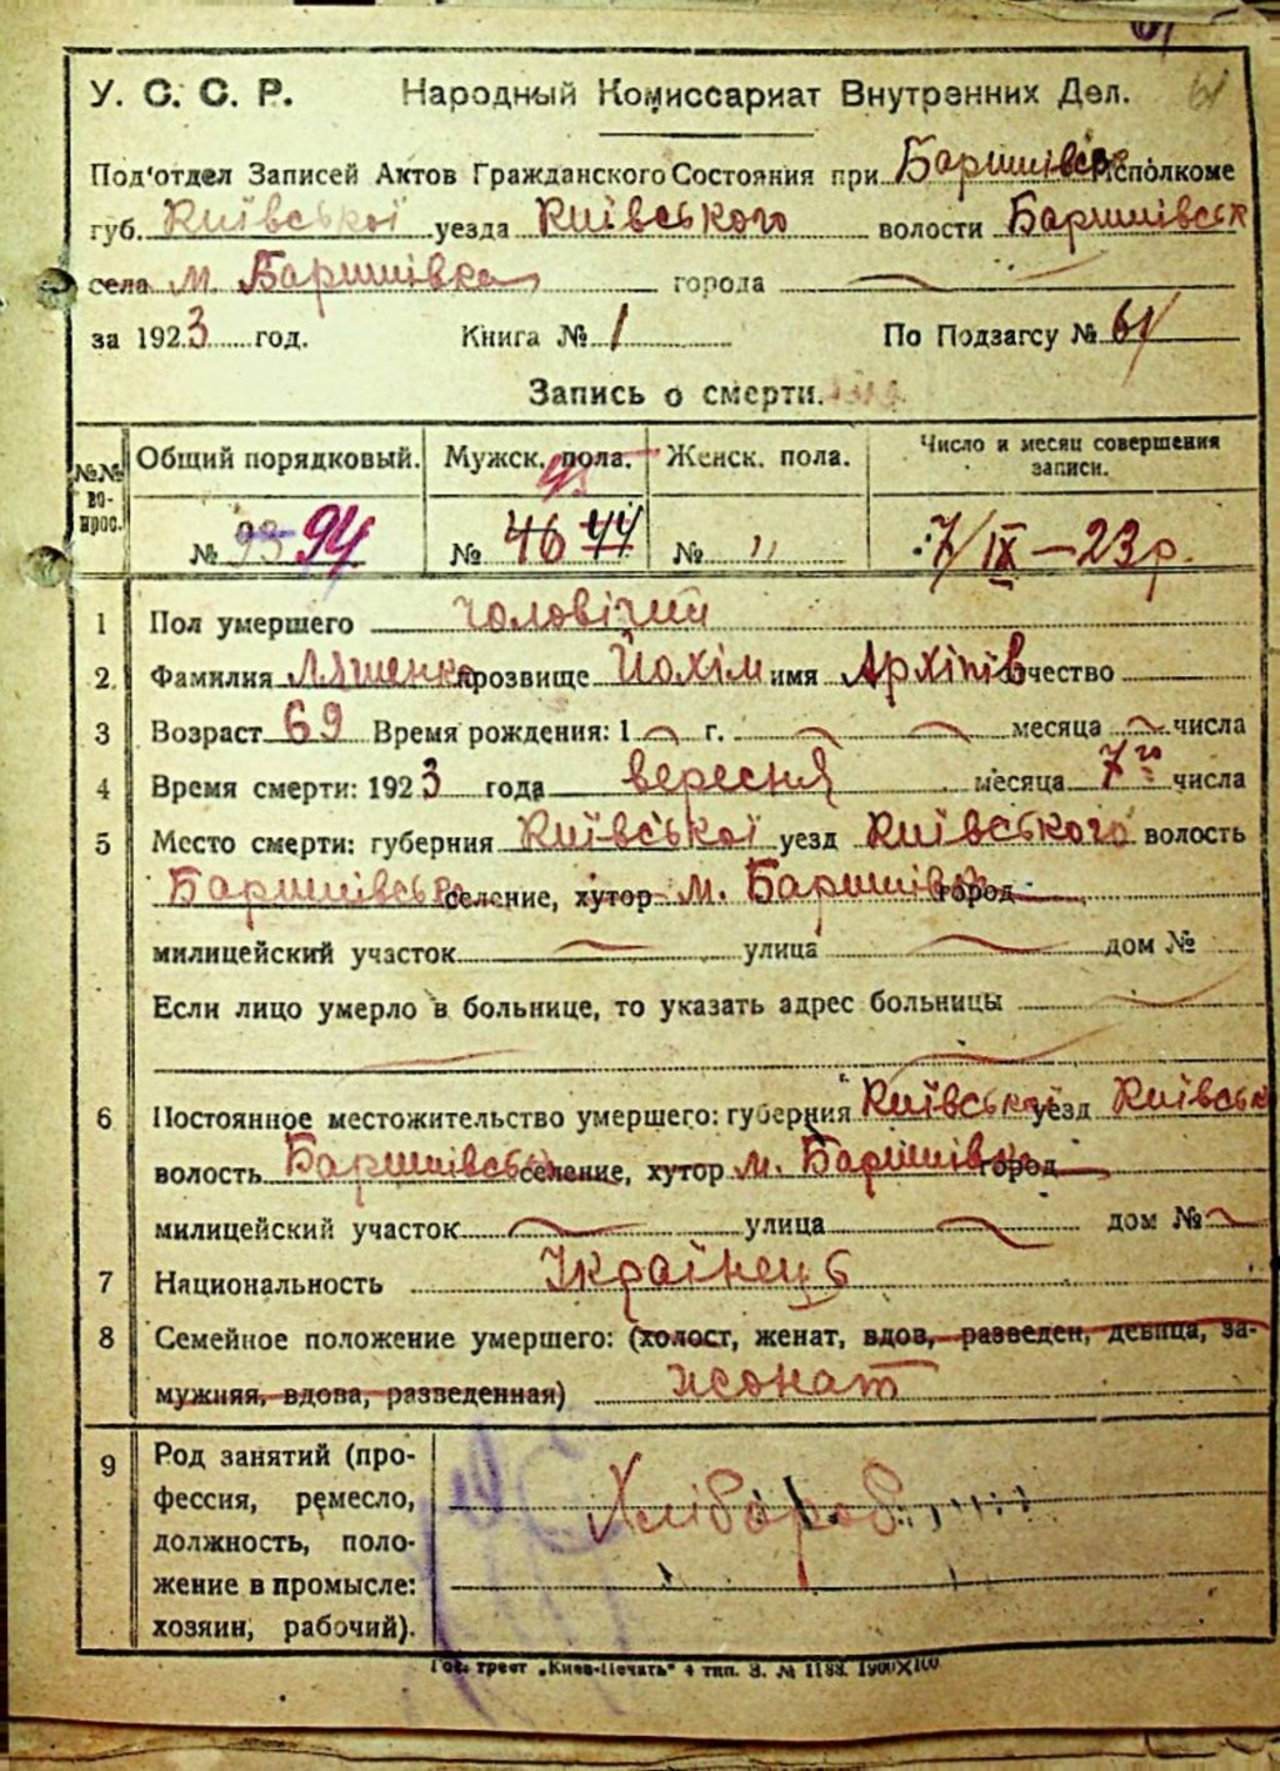 61
У. С. С. Р. Народный Комиссариат Внутренних Дел. 61
Под'отдел Записей Актов Гражданского Состояния при Баришівськ Исполкоме
губ. Київської уезда Київського волости Баришівськ
села м. Баришівка города
за 1923 год. Книга № 1 По Подзагсу № 61
Запись о смерти.
№№ вопрос. Общий порядковый. Мужск. пола. Женск. пола. Число и месяц совершения записи.
45
№ 93 94 № 46 44 № " 7/IX—23 р.
1 Пол умершего чоловічий
2 Фамилия Ляшенко прозвище Йохім имя Архіпів отчество
3 Возраст 69 Время рождения: 1 г. месяца числа
4 Время смерти: 1923 года вересня месяца 7го числа
5 Место смерти: губерния Київської уезд Київського волость
Баришівська селение, хутор м. Баришівка город
милицейский участок улица дом №
Если лицо умерло в больнице, то указать адрес больницы
6 Постоянное местожительство умершего: губерния Київської уезд Київськ
волость Баришівська селение, хутор м. Баришівка город
милицейский участок улица дом №
7 Национальность Українець
8 Семейное положение умершего: (холост, женат, вдов, разведен, девица, за-
мужняя, вдова, разведенная) жонат
9 Род занятий (про-
фессия, ремесло,
должность, поло-
жение в промысле:
хозяин, рабочий).
Хлібороб
Гос. трест „Киев-Печать" 4 тип. З. № 1188. 1900×100